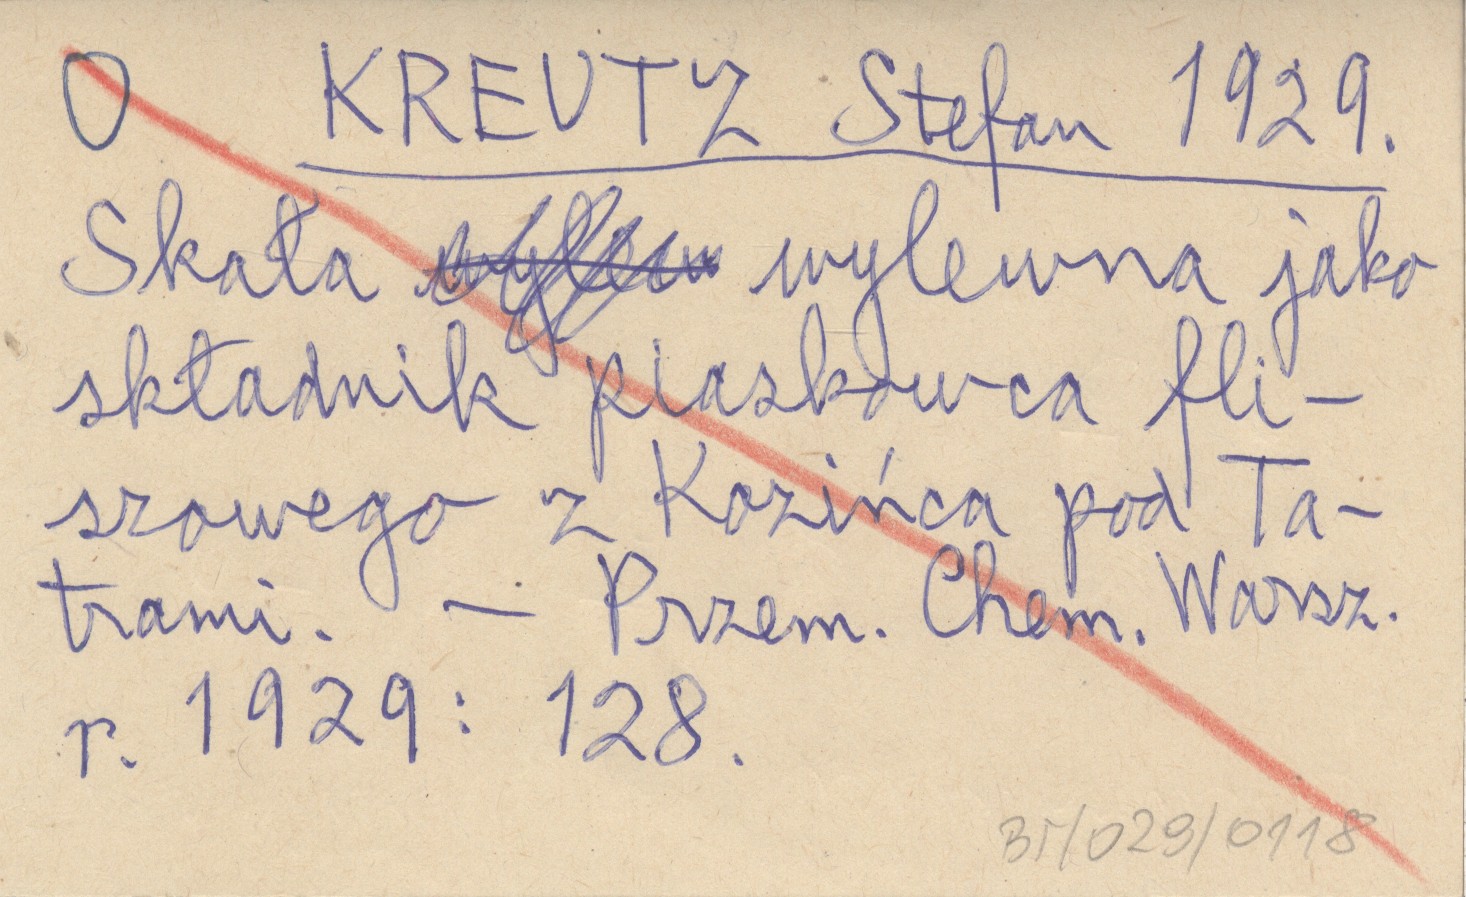 O KREUTZ Stefan 1929.
Skała wylewna jako
składnik piaskowca fli-
szowego z Kozińca pod Ta-
trami. — Przem. Chem. Warsz.
r. 1929: 128.
BT/029/0118